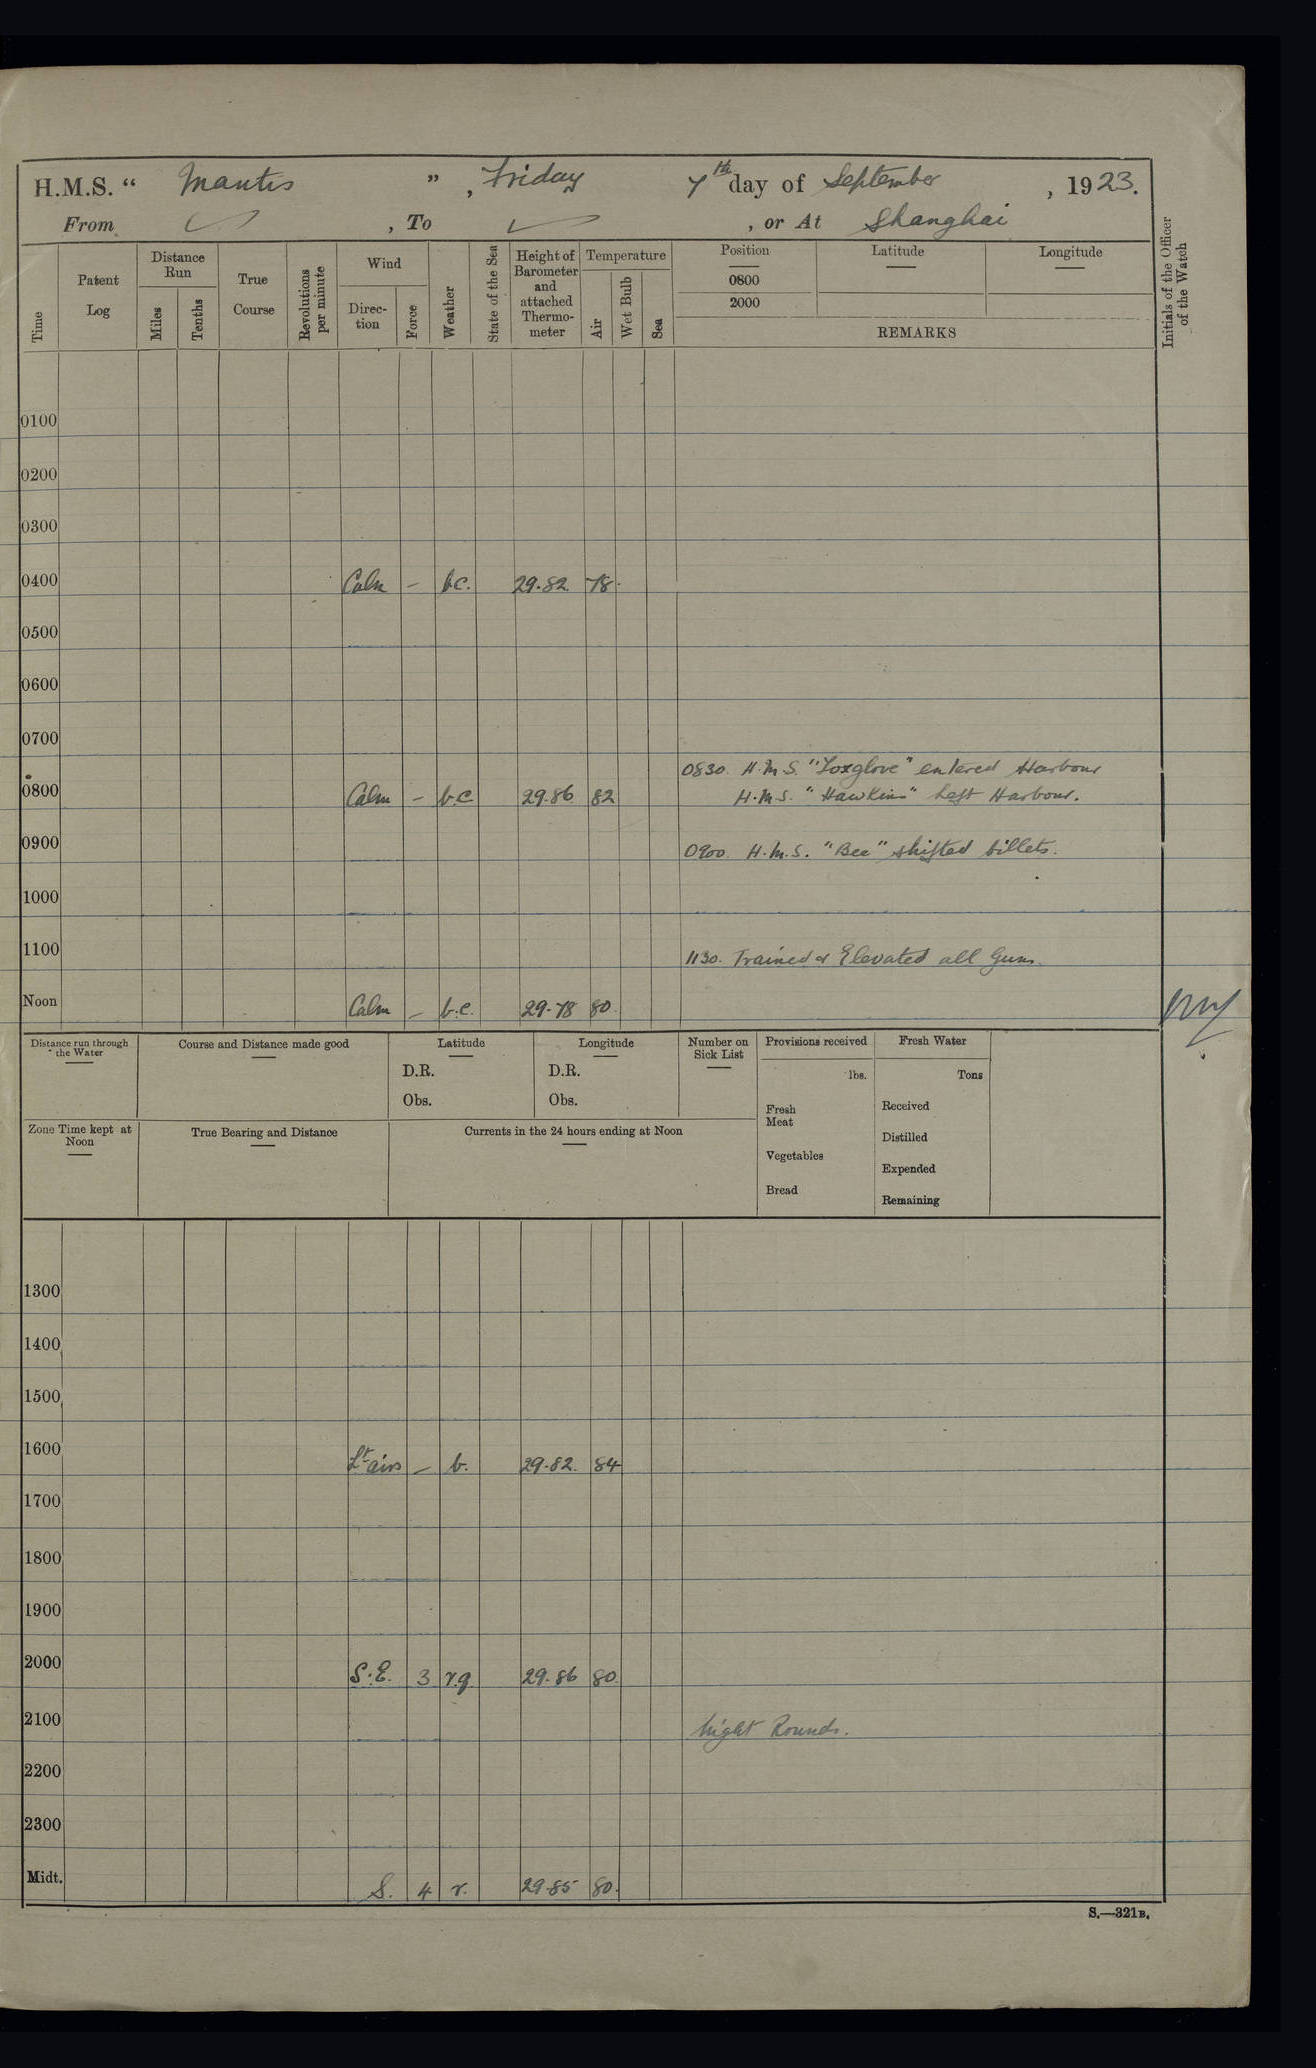 H.M.S. “ Mantis ” , Friday 7th day of September , 1923.
From , To , or At Shanghai
Time
Patent Log
Distance Run
Miles
Tenths
True Course
Revolutions per minute
Wind
Direc-tion
Force
Weather
State of the Sea
Height of Barometer and attached Thermo-meter
Temperature
Air
Wet Bulb
Sea
Position
0800
2000
Latitude
Longitude
REMARKS
Initials of the Officer of the Watch
0100
0200
0300
0400 Calm – b.c. 29.82 78.
0500
0600
0700
0830. H.M.S. "Foxglove" entered Harbour
0800 Calm – b.c 29.86 82 H.M.S. "Hawkins" left Harbour.
0900 0900. H.M.S. "Bee" shifted billets.
1000
1100 1130. Trained & Elevated all Guns.
Noon Calm – b.c. 29.78 80.
Distance run through the Water
Course and Distance made good
Latitude
D.R.
Obs.
Longitude
D.R.
Obs.
Number on Sick List
Provisions received
lbs.
Fresh Meat
Vegetables
Bread
Fresh Water
Tons
Received
Distilled
Expended
Remaining
Zone Time kept at Noon
True Bearing and Distance
Currents in the 24 hours ending at Noon
1300
1400
1500
1600 Lt airs – b. 29.82. 84
1700
1800
1900
2000 S.E. 3 r.q. 29.86 80.
2100 Night Rounds.
2200
2300
Midt. S. 4 r. 29.85 80.
S.—321B.